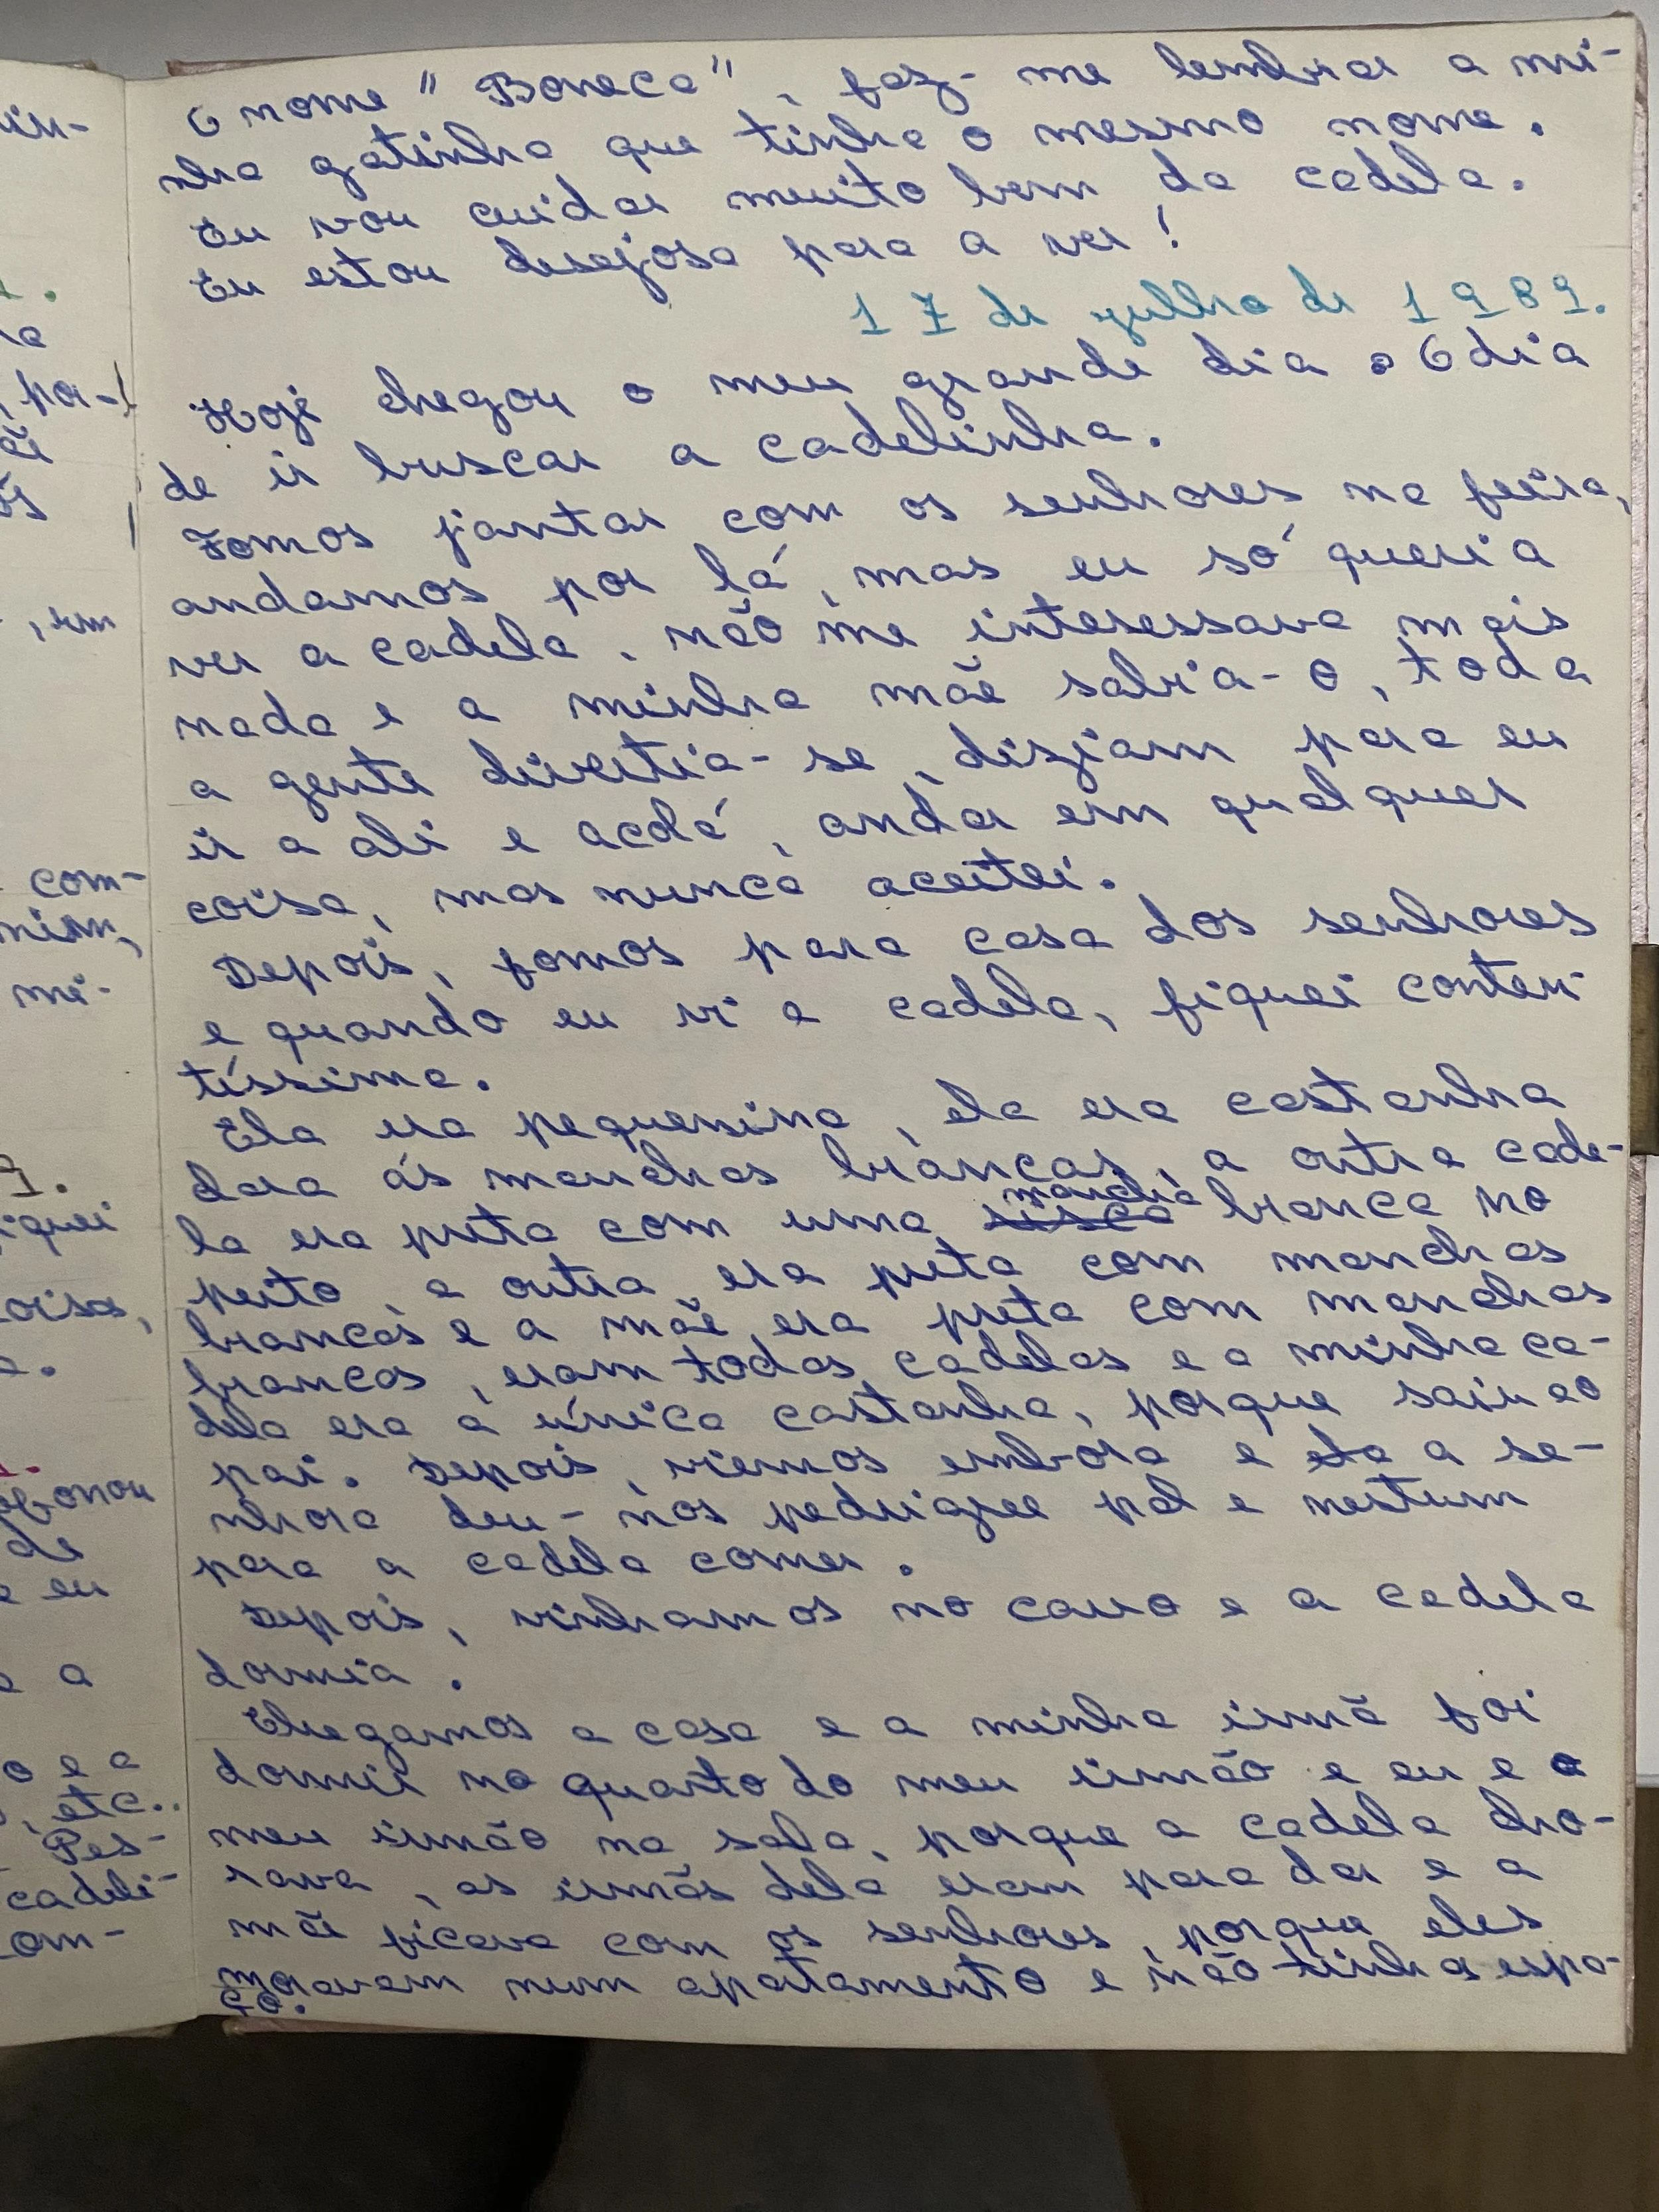 O nome "Boneca", faz-me lembrar a mi-
nha gatinha que tinha o mesmo nome.
Eu vou cuidar muito bem da cadela.
Eu estou desejosa para a ver!
17 de julho de 1989.
Hoje chegou o meu grande dia. O dia
de ir buscar a cadelinha.
Fomos jantar com os senhores na feira,
andamos por lá, mas eu só queria
ver a cadela, não me interessava mais
nada e a minha mãe sabia-o, toda
a gente divertia-se, diziam para eu
ir a ali e acolá, andar em qualquer
coisa, mas nunca aceitei.
Depois, fomos para casa dos senhores
e quando eu vi a cadela, fiquei conten
tíssima.
Ela era pequenina, ela era castanha
clara ás manchas brancas, a outra cade-
la era preta com uma mancha branca no
peito, a outra era preta com manchas
brancas e a mãe era preta com manchas
brancas, eram todas cadelas e a minha ca-
dela era a única castanha, porque saiu ao
pai. Depois, viemos embora e ela a se-
nhora deu-nos pedrigree pal e nestum
para a cadela comer.
Depois, vinhamos no carro e a cadela
dormia.
Chegamos a casa e a minha irmã foi
dormir no quarto do meu irmão e eu e o
meu irmão na sala, porque a cadela cho-
rava, as irmãs dela eram para dar e a
mãe ficava com os senhores, porque eles
moravam num apartamento e não tinha espa-
ço.